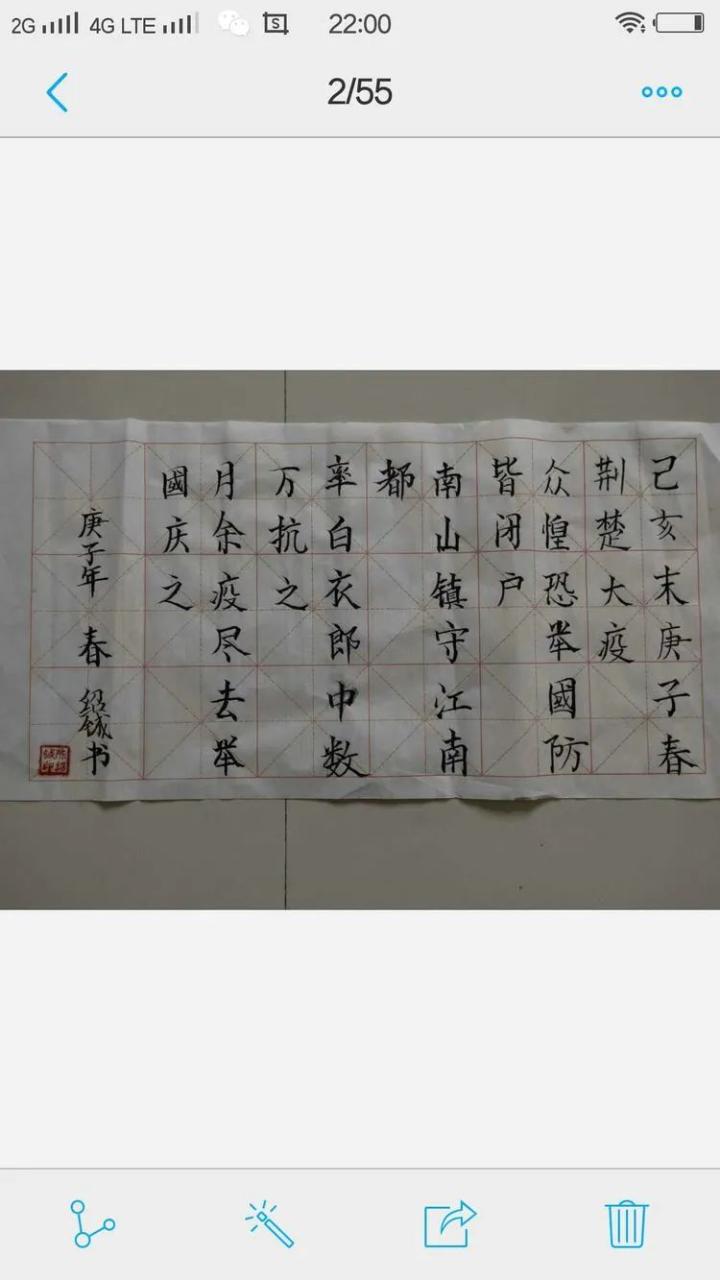 2G 4G LTE 22:00
2/55
己亥末庚子春
荆楚大疫
众惶恐举國防
皆闭户
南山镇守江南
都
率白衣郎中数
万抗之
月余疫尽去举
國庆之
庚子年 春 绍铖书